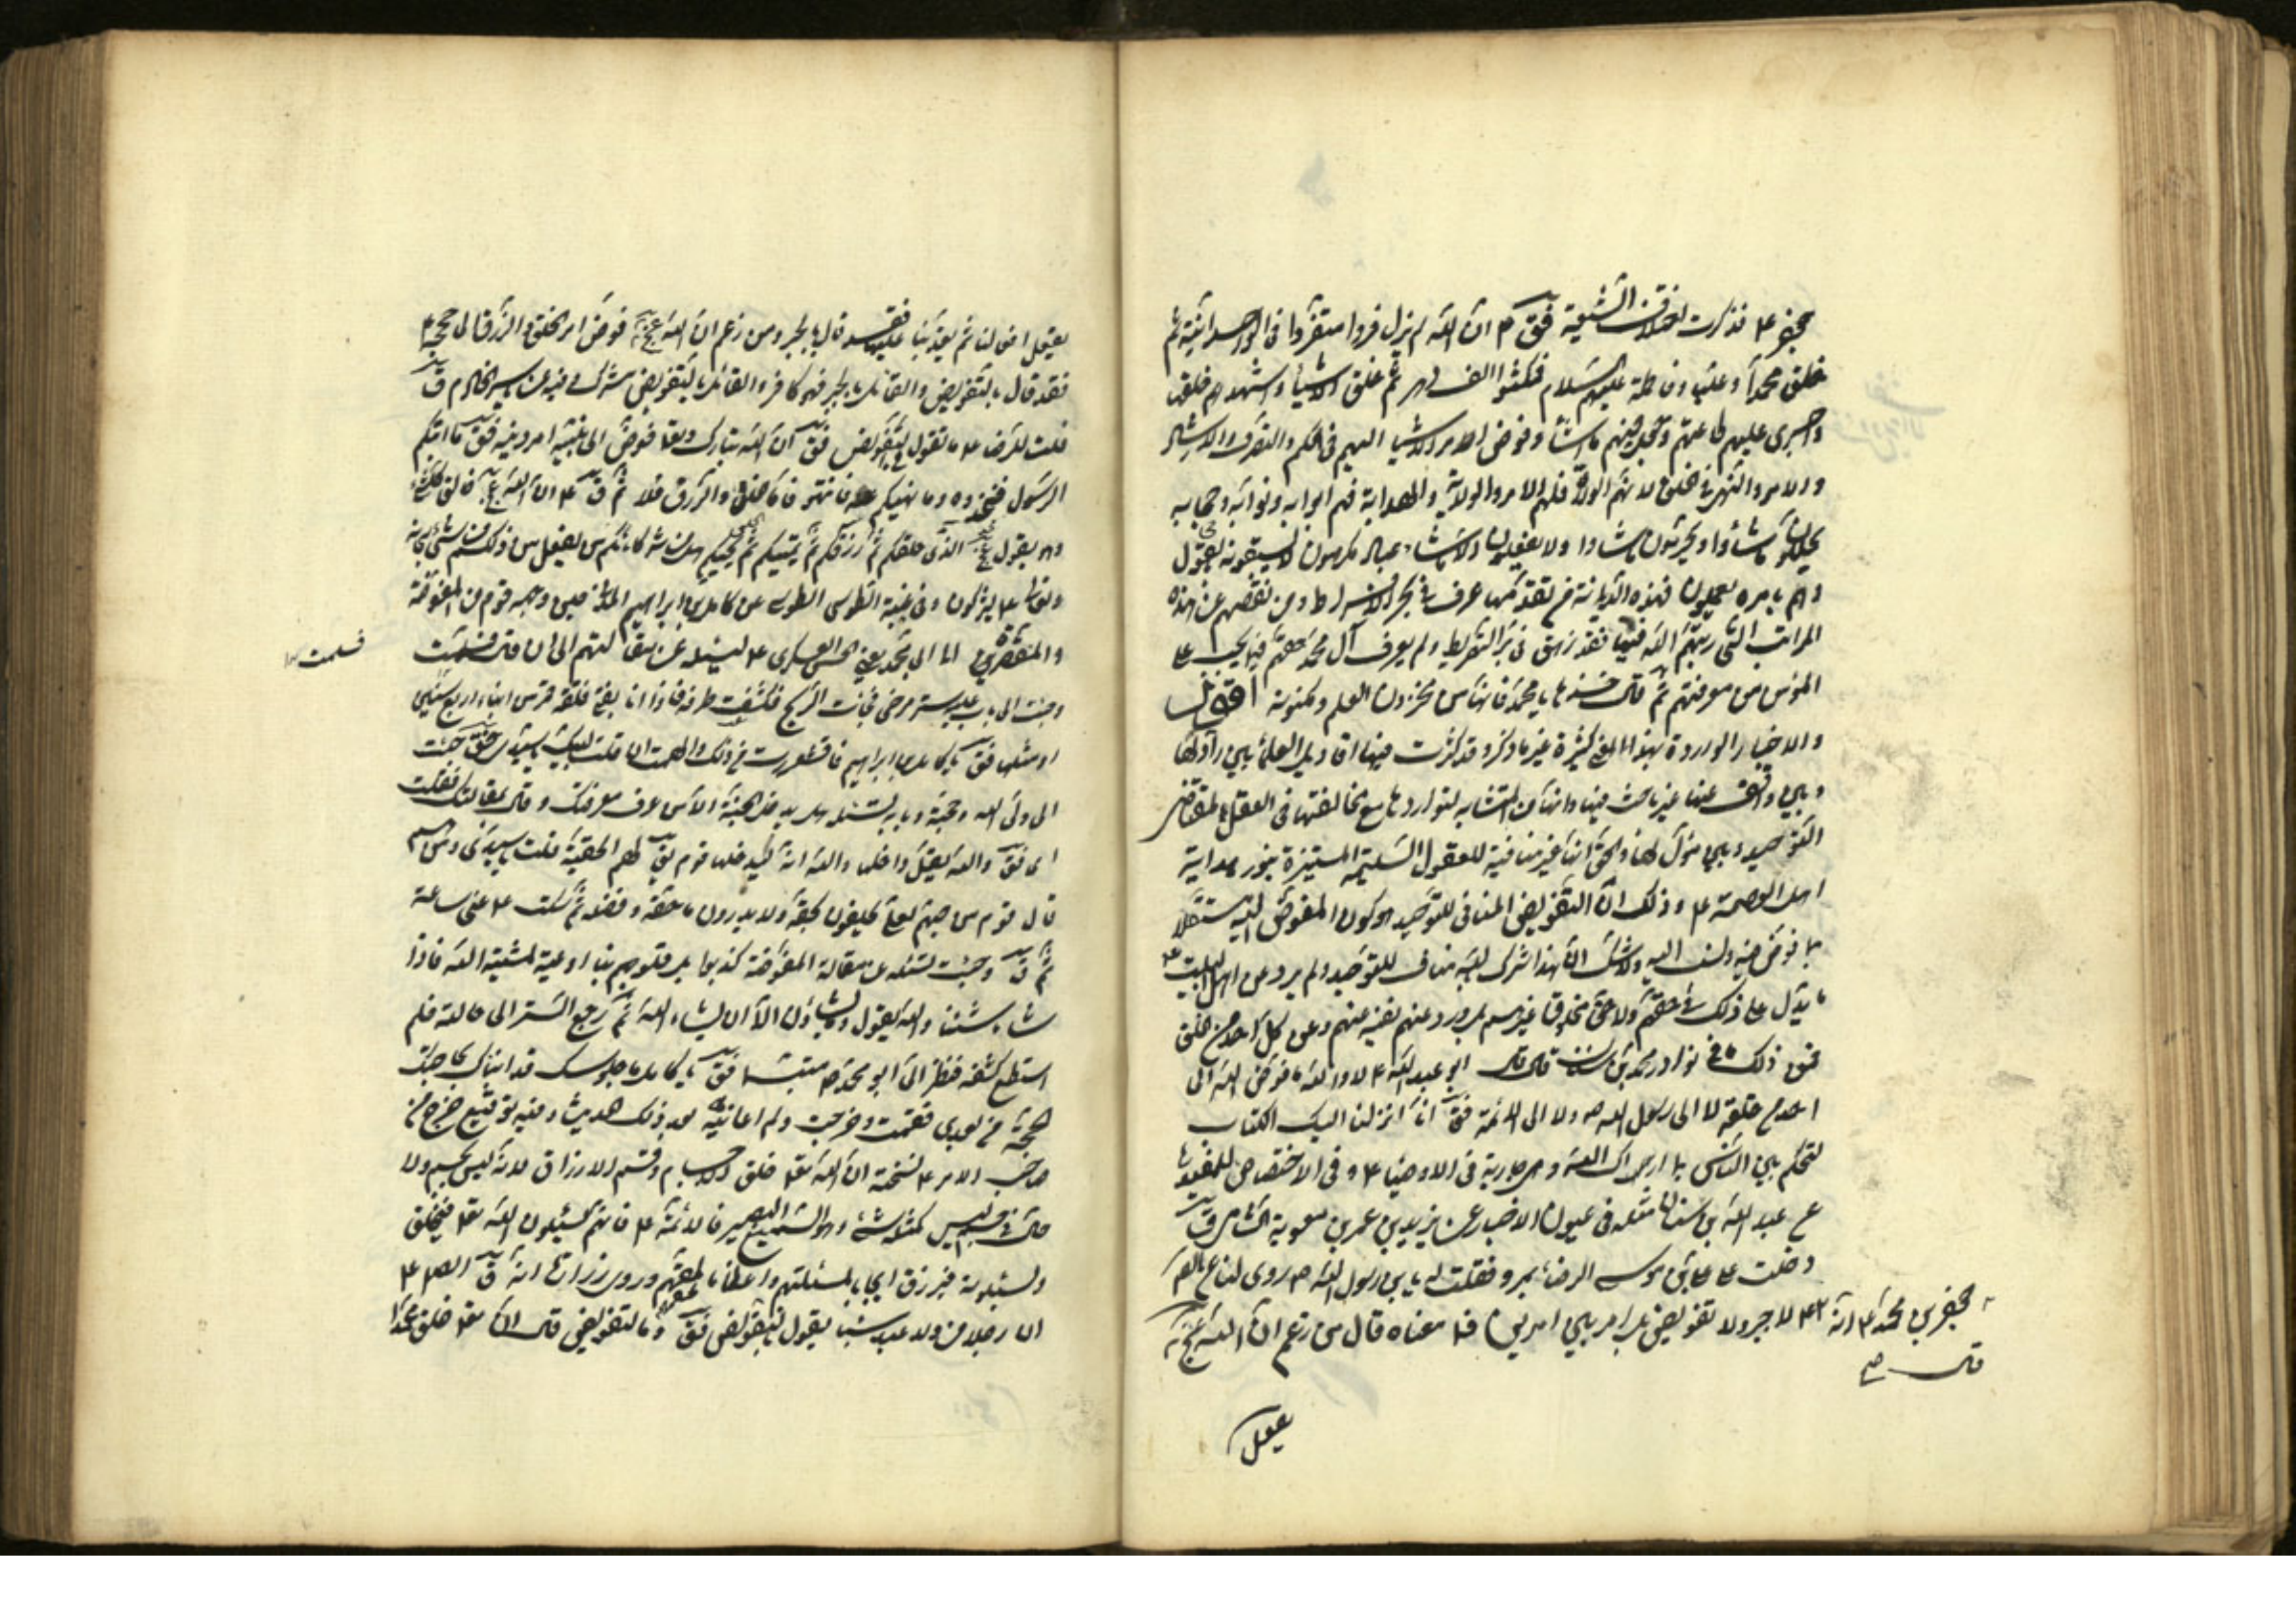 جعفر ع فذكرت اختلاف الشيعة فق ع ان الله لم يزل فردا متفردا فى الوحدانية ثم
خلق محمدا وعليا وفاطمة عليهم السلام فمكثوا الف دهر ثم خلق الاشياء واشهدهم خلقها
واجرى عليهم طاعتهم وجعل فيهم ما شاء وفوض امر الاشياء اليهم فى الحكم والتصرف والارشاد
والامر والنهى فى الخلق لانهم الولاة فلهم الامر والولاية والهداية فهم ابوابه ونوابه وحجابه
يحللون ما شاؤا ويحرمون ما شاؤا ولا يفعلون الا ما شاء عباد مكرمون لا يسبقونه بالقول
وهم بامره يعملون فهذه الديانة من تقدمها غرق فى بحر الافراط ومن نقصهم عن هذه
المراتب التى رتبهم الله فيها فقد زهق فى بر التفريط ولم يعرف آل محمد حقهم فيما يجب على
المؤمن من معرفتهم ثم قال خذها يا محمد فانها من مخزون العلم ومكنونه اقول
والاخبار الواردة بهذا المعنى كثيرة غير ما ذكر وقد كثرت فيها اقاويل العلماء بين راد لها
وبين واقف عنها غير باحث فيها وانها من المتشابه لتواردها مع مخالفتها فى العقل لمقتضى
التوحيد وبين مؤل لها والحق انها غير منافية للعقول السليمة المستنيرة بنور هداية
اهل العصمة ع وذلك ان التفويض المنافى للتوحيد هو كون المفوض اليه مستقلا
بما فوض فيه ولسند اليه ولا شك ان هذا شرك بالله مناف للتوحيد ولم يرد عن اهل البيت ع
ما يدل على ذلك فى حقهم ولا حق مخلوق غيرهم بل ورد عنهم نفيه عنهم وعن كل احد من الخلق
فمن ذلك ما فى نوادر محمد بن سنان قال قال ابو عبد الله ع لا والله ما فوض الله الى
احد من خلقه الا الى رسول الله ص والا الى الائمة فق انا انزلنا اليك الكتاب
لتحكم بين الناس بما اراك الله وهى جارية فى الاوصياء ع وفى الاختصاص للمفيد
عن عبد الله بن سنان مثله فى عيون الاخبار عن يزيد بن عمير بن معوية الشامى ق
دخلت على على بن موسى الرضا بمرو فقلت له يا بن رسول الله ص روى لنا عن الصم
جعفر بن محمد ع انه قال لا جبر ولا تفويض بل امر بين امرين فما معناه قال من زعم ان الله عز وجل
قال صح
يفعل
يفعل افعالنا ثم يعذبنا عليها فقد قال بالجبر ومن زعم ان الله عز وجل فوض امر الخلق والرزق الى حججه ع
فقد قال بالتفويض والقائل بالجبر فهو كافر والقائل بالتفويض مشرك وفيه عن ياسر الخادم ق
قلت للرضا ع ما تقول فى التفويض فق ان الله تبارك وتعا فوض الى نبيه امر دينه فق ما اتيكم
الرسول فخذوه وما نهيكم عنه فانتهوا فاما الخلق والرزق فلا ثم ق ع ان الله عز وجل خالق كل شئ
وهو يقول عز وجل الذى خلقكم ثم رزقكم ثم يميتكم ثم يحييكم هل من شركائكم من يفعل من ذلكم من شئ سبحانه
وتعالى عما يشركون وفى غيبة الطوسى الطوسى عن كامل بن ابراهيم المدنى وجه قوم من المفوضة
والمقصرة الى ابى محمد يعنى الحسن العسكرى ع ليسئله عن مقالتهم الى ان قال فسلمت
فسلمت
وجئت الى باب عليه ستر مرخى فجائت الريح فكشفت طرفه فاذا انا بفتى فلقة قمر من ابناء اربع سنين
او مثلها فق يا كامل بن ابراهيم فاقشعررت من ذلك والهمت ان قلت لبيك يا سيدى فق جئت
الى ولى الله وحجته وبابه تسئله هل يدخل الجنة الا من عرف معرفتك وقال بمقالتك فقلت
اى فق والله يقل داخلها والله انه ليدخلها قوم يق لهم الحقية قلت يا سيدى ومن هم
قال قوم من حبهم لعلى يحلفون بحقه ولا يدرون ما حقه وفضله ثم سكت ع عنى ساعة
ثم ق وجئت تسئله عن مقالة المفوضة كذبوا بل قلوبهم اوعية لمشية الله فاذا
شاء شئنا والله يقول وما تشاؤن الا ان يشاء الله ثم رجع الستر الى حالته فلم
استطع كشفه فنظر الى ابو محمد ع متبسما فق يا كامل ما جلوسك قد انباك بحاجتك
الحجة من بعدى فقمت وخرجت ولم اعاينه بعد ذلك الحديث وفيه توقيع خرج من
صاحب الامر ع نسخته ان الله تعا خلق الاجسام وقسم الارزاق لانه ليس بجسم ولا
حال فى جسم ليس كمثله شئ وهو السميع البصير فالائمة ع فانهم يسئلون الله تعا فيخلق
ويسئلونه فيرزق ايجابا لمسئلتهم واعظاما لحقهم وروى زرارة انه ق للص ع
ان رجلا من ولد عبد سبا يقول بالتفويض فق وما التفويض قال ان الله تعا خلق محمدا